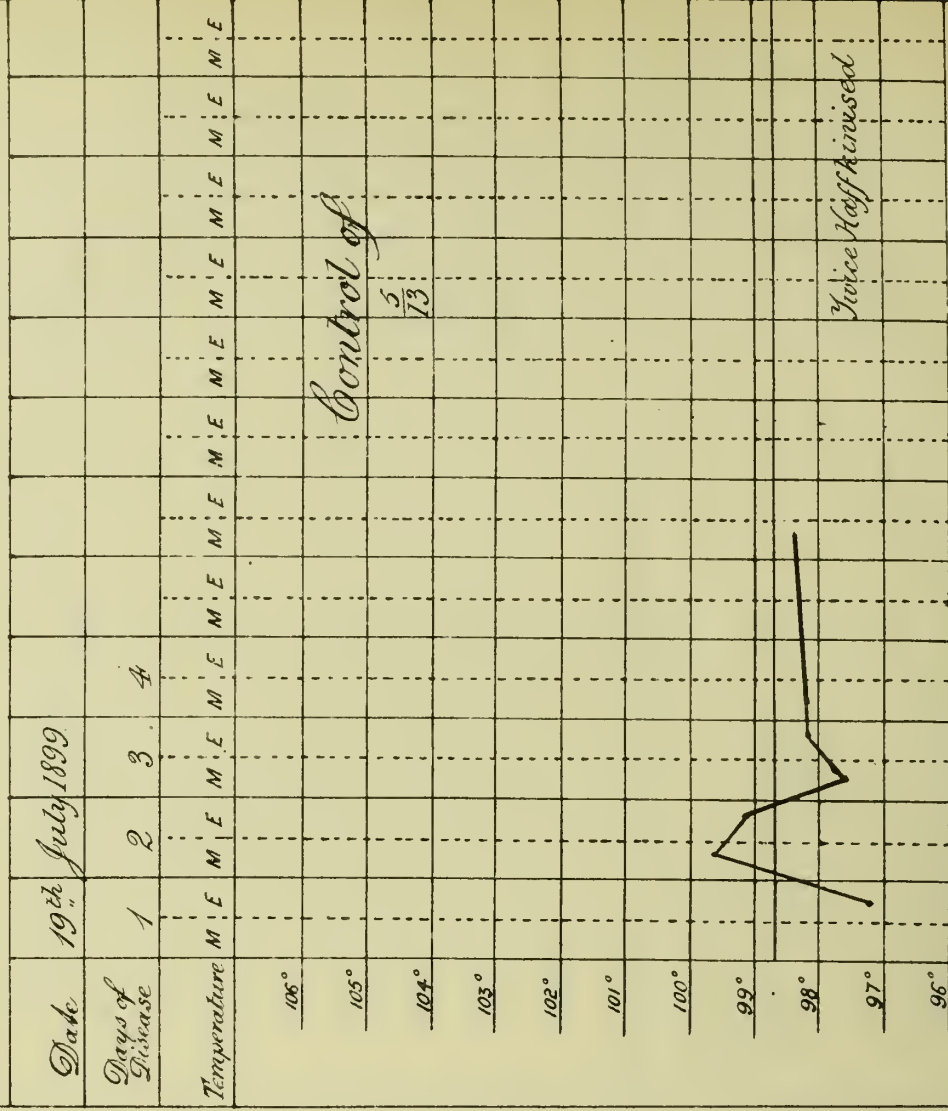 Date 19th July 1899
Days of Disease 1 2 3 4
Temperature M E M E M E M E M E M E M E M E M E M E M E M E
106°
105°
104°
103°
102°
101°
100°
99°
98°
97°
96°
Control of
5/13
Twice Haffkinised